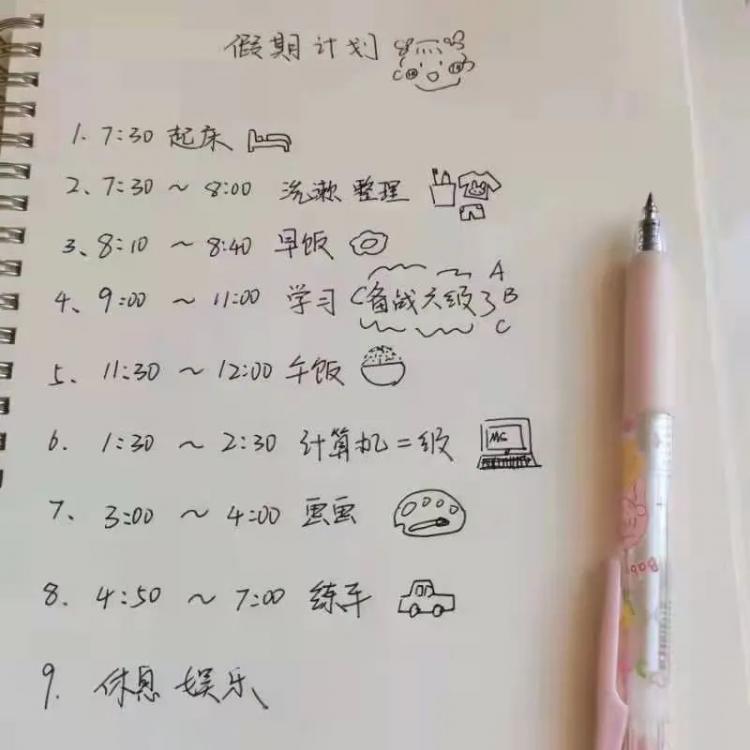 假期计划
1. 7:30 起床
2、7:30 ~ 8:00 洗漱 整理
3、8:10 ~ 8:40 早饭
4、9:00 ~ 11:00 学习 备战六级 A B C
5、11:30 ~ 12:00 午饭
6. 1:30 ~ 2:30 计算机二级 MC
7. 3:00 ~ 4:00 画画
8. 4:50 ~ 7:00 练车
9. 休息 娱乐